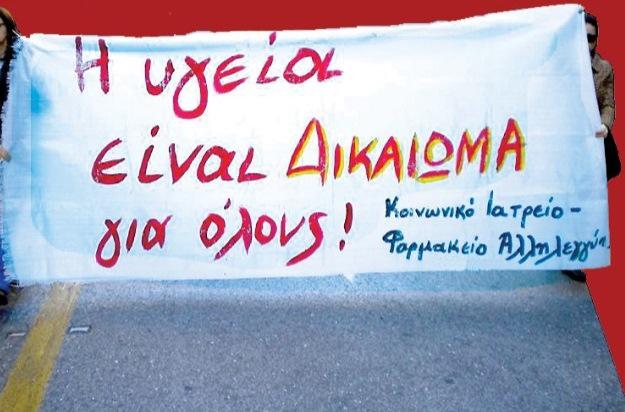 Η υγεία
είναι ΔΙΚΑΙΩΜΑ
για όλους!
Κοινωνικό Ιατρείο -
Φαρμακείο Αλληλεγγύης